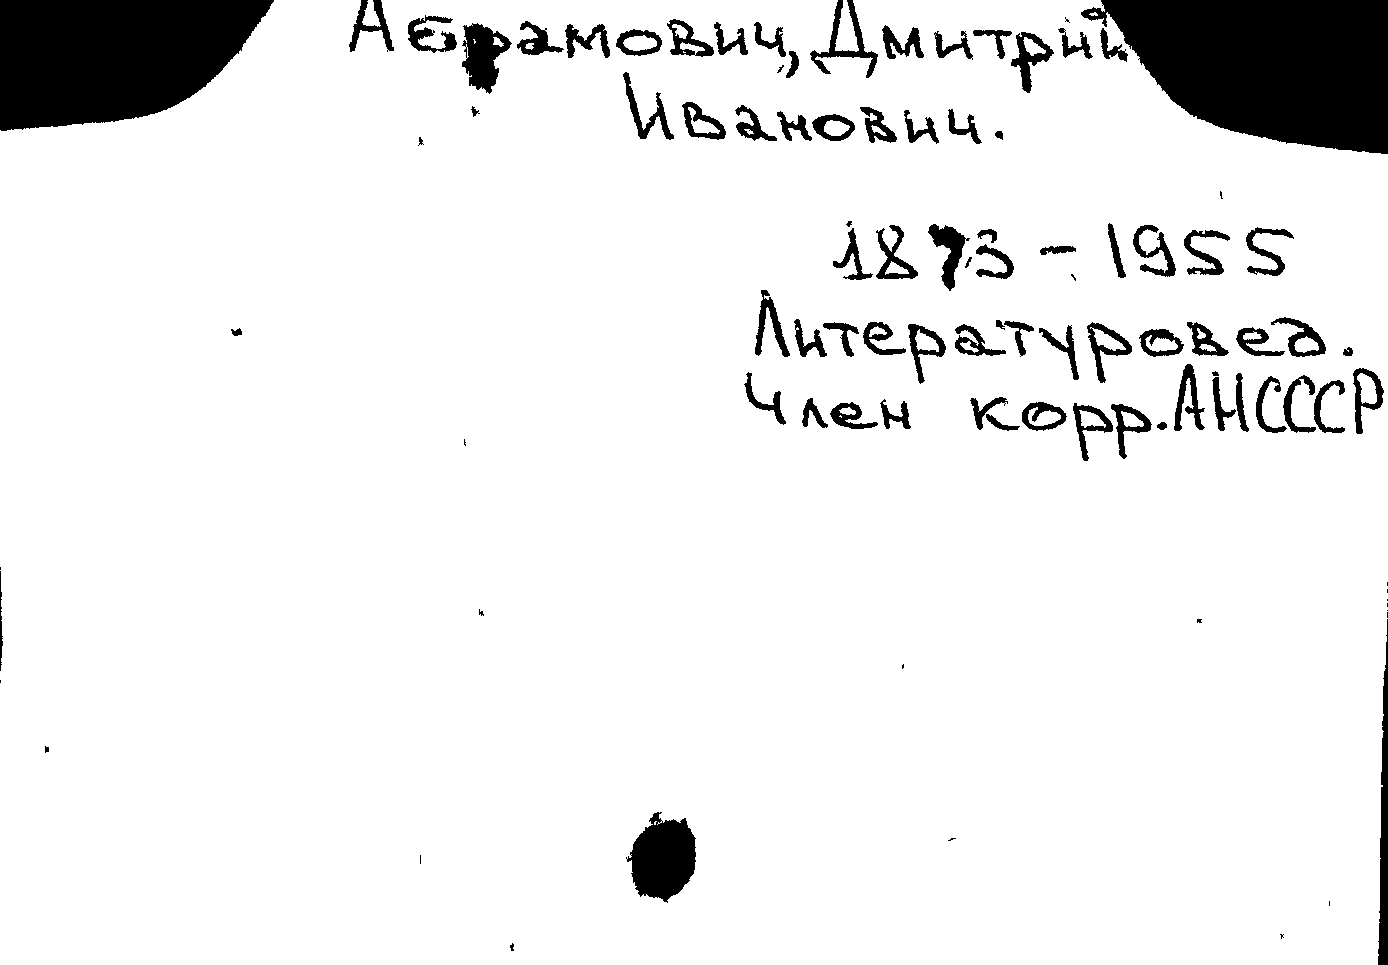 Абрамович, Дмитрий
Иванович.
1873 - 1955
Литературовед.
Член корр. АН СССР